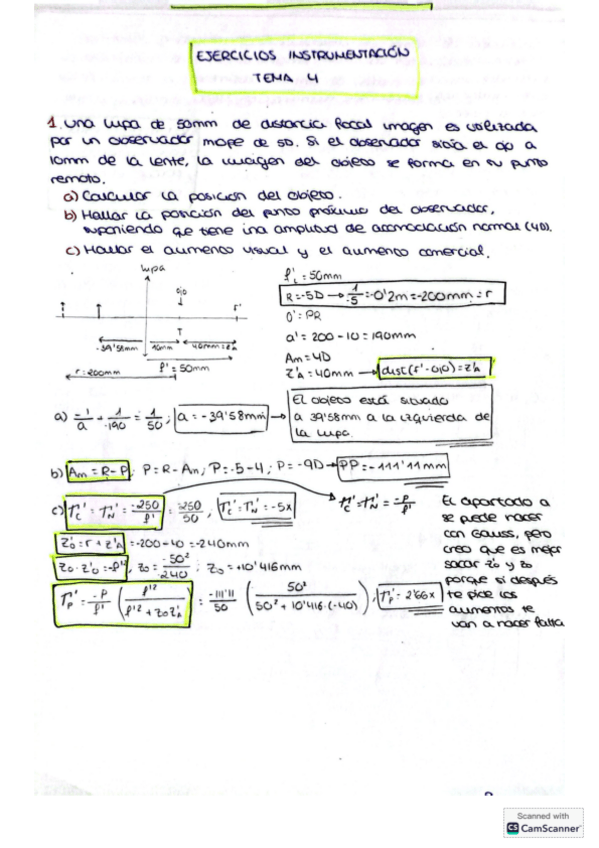 EJERCICIOS INSTRUMENTACIÓN
TEMA 4
1. Una lupa de 50mm de distancia focal imagen es utilizada
por un observador miope de 5D. Si el observador sitúa el ojo a
10mm de la lente, la imagen del objeto se forma en su punto
remoto.
a) Calcular la posición del objeto.
b) Hallar la posición del punto próximo del observador,
suponiendo que tiene ina amplitud de acomodación normal (4D).
c) Hallar el aumento visual y el aumento comercial.
lupa
ojo
F'
T
-39'58mm
10mm
40mm=z'A
r=200mm
f'=50mm
f'L = 50mm
R=-5D → 1/-5 = -0'2m = -200mm = r
O' = PR
a' = 200 - 10 = 190mm
Am = 4D
Z'A = 40mm → dist(F'-ojo) = Z'A
a) -1/a + 1/-190 = 1/50; a = -39'58mm →
El objeto está situado
a 39'58mm a la izquierda de
la lupa.
b) Am = R-P; P = R-Am; P = -5-4; P = -9D → PP = -111'11mm
c) Γ'C = Γ'N = -250/f' = 250/50; Γ'C = Γ'N = -5x
Γ'C = Γ'N = -P/f'
Z'O = r + Z'A = -200-40 = -240mm
ZO·Z'O = -f'²; ZO = -50²/240; ZO = +10'416mm
Γ'P = -P/f' (f'²/f'²+ZOZ'A) = -111'11/50 (50²/50²+10'416·(-40)); Γ'P = 2'66x
El apartado a
se puede hacer
con Gauss, pero
creo que es mejor
sacar z'o y zo
porque si después
te pide los
aumentos te
van a hacer falta
Scanned with
CS CamScanner